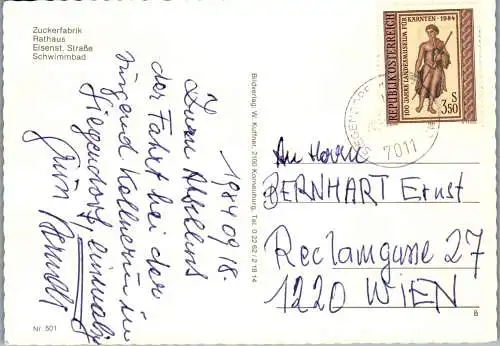 Zuckerfabrik
Rathaus
Eisenst. Straße
Schwimmbad
1984 09 18.
Zum Abschluß
der Fahrt bei der
in
Siegendorf, einmalig
Nr. 501
Bildverlag W. Kuffner, 2100 Korneuburg, Tel. 0 22 62 / 2 18 14
REPUBLIK ÖSTERREICH
100 JAHRE LANDESMUSEUM FÜR KÄRNTEN · 1984
S
3.50
7011
An Herrn
BERNHART Ernst
Reclamgasse 27
1220 WIEN
B